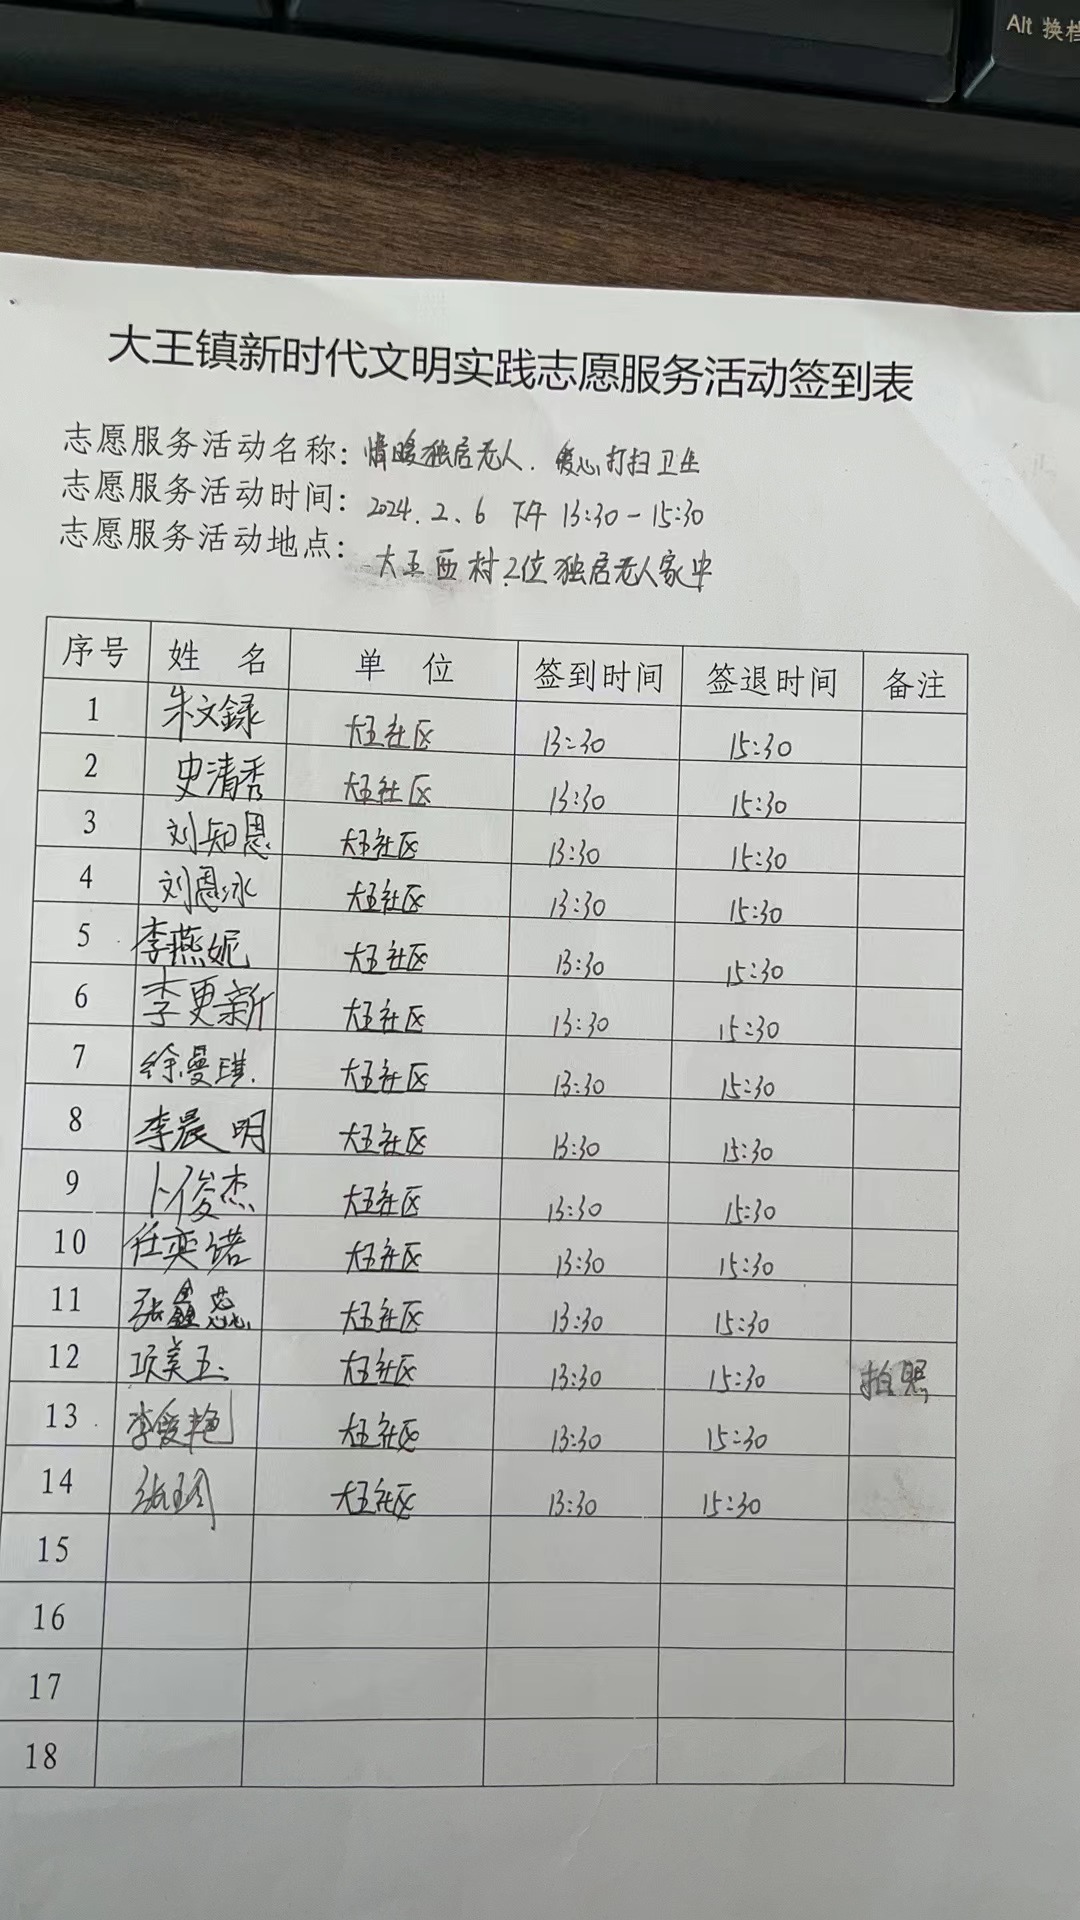 Alt 换档
大王镇新时代文明实践志愿服务活动签到表
志愿服务活动名称：情暖独居老人．爱心打扫卫生
志愿服务活动时间：2024.2.6 下午 13:30-15:30
志愿服务活动地点：大王西村2位独居老人家中
序号 姓名 单位 签到时间 签退时间 备注
1 朱文録 大王社区 13:30 15:30
2 史清秀 大王社区 13:30 15:30
3 刘知恩 大王社区 13:30 15:30
4 刘恩泳 大王社区 13:30 15:30
5 李燕妮 大王社区 13:30 15:30
6 李更新 大王社区 13:30 15:30
7 徐曼琪 大王社区 13:30 15:30
8 李晨明 大王社区 13:30 15:30
9 卜俊杰 大王社区 13:30 15:30
10 任奕诺 大王社区 13:30 15:30
11 张鑫蕊 大王社区 13:30 15:30
12 项美玉 大王社区 13:30 15:30 拍照
13 李爱艳 大王社区 13:30 15:30
14 张 大王社区 13:30 15:30
15
16
17
18